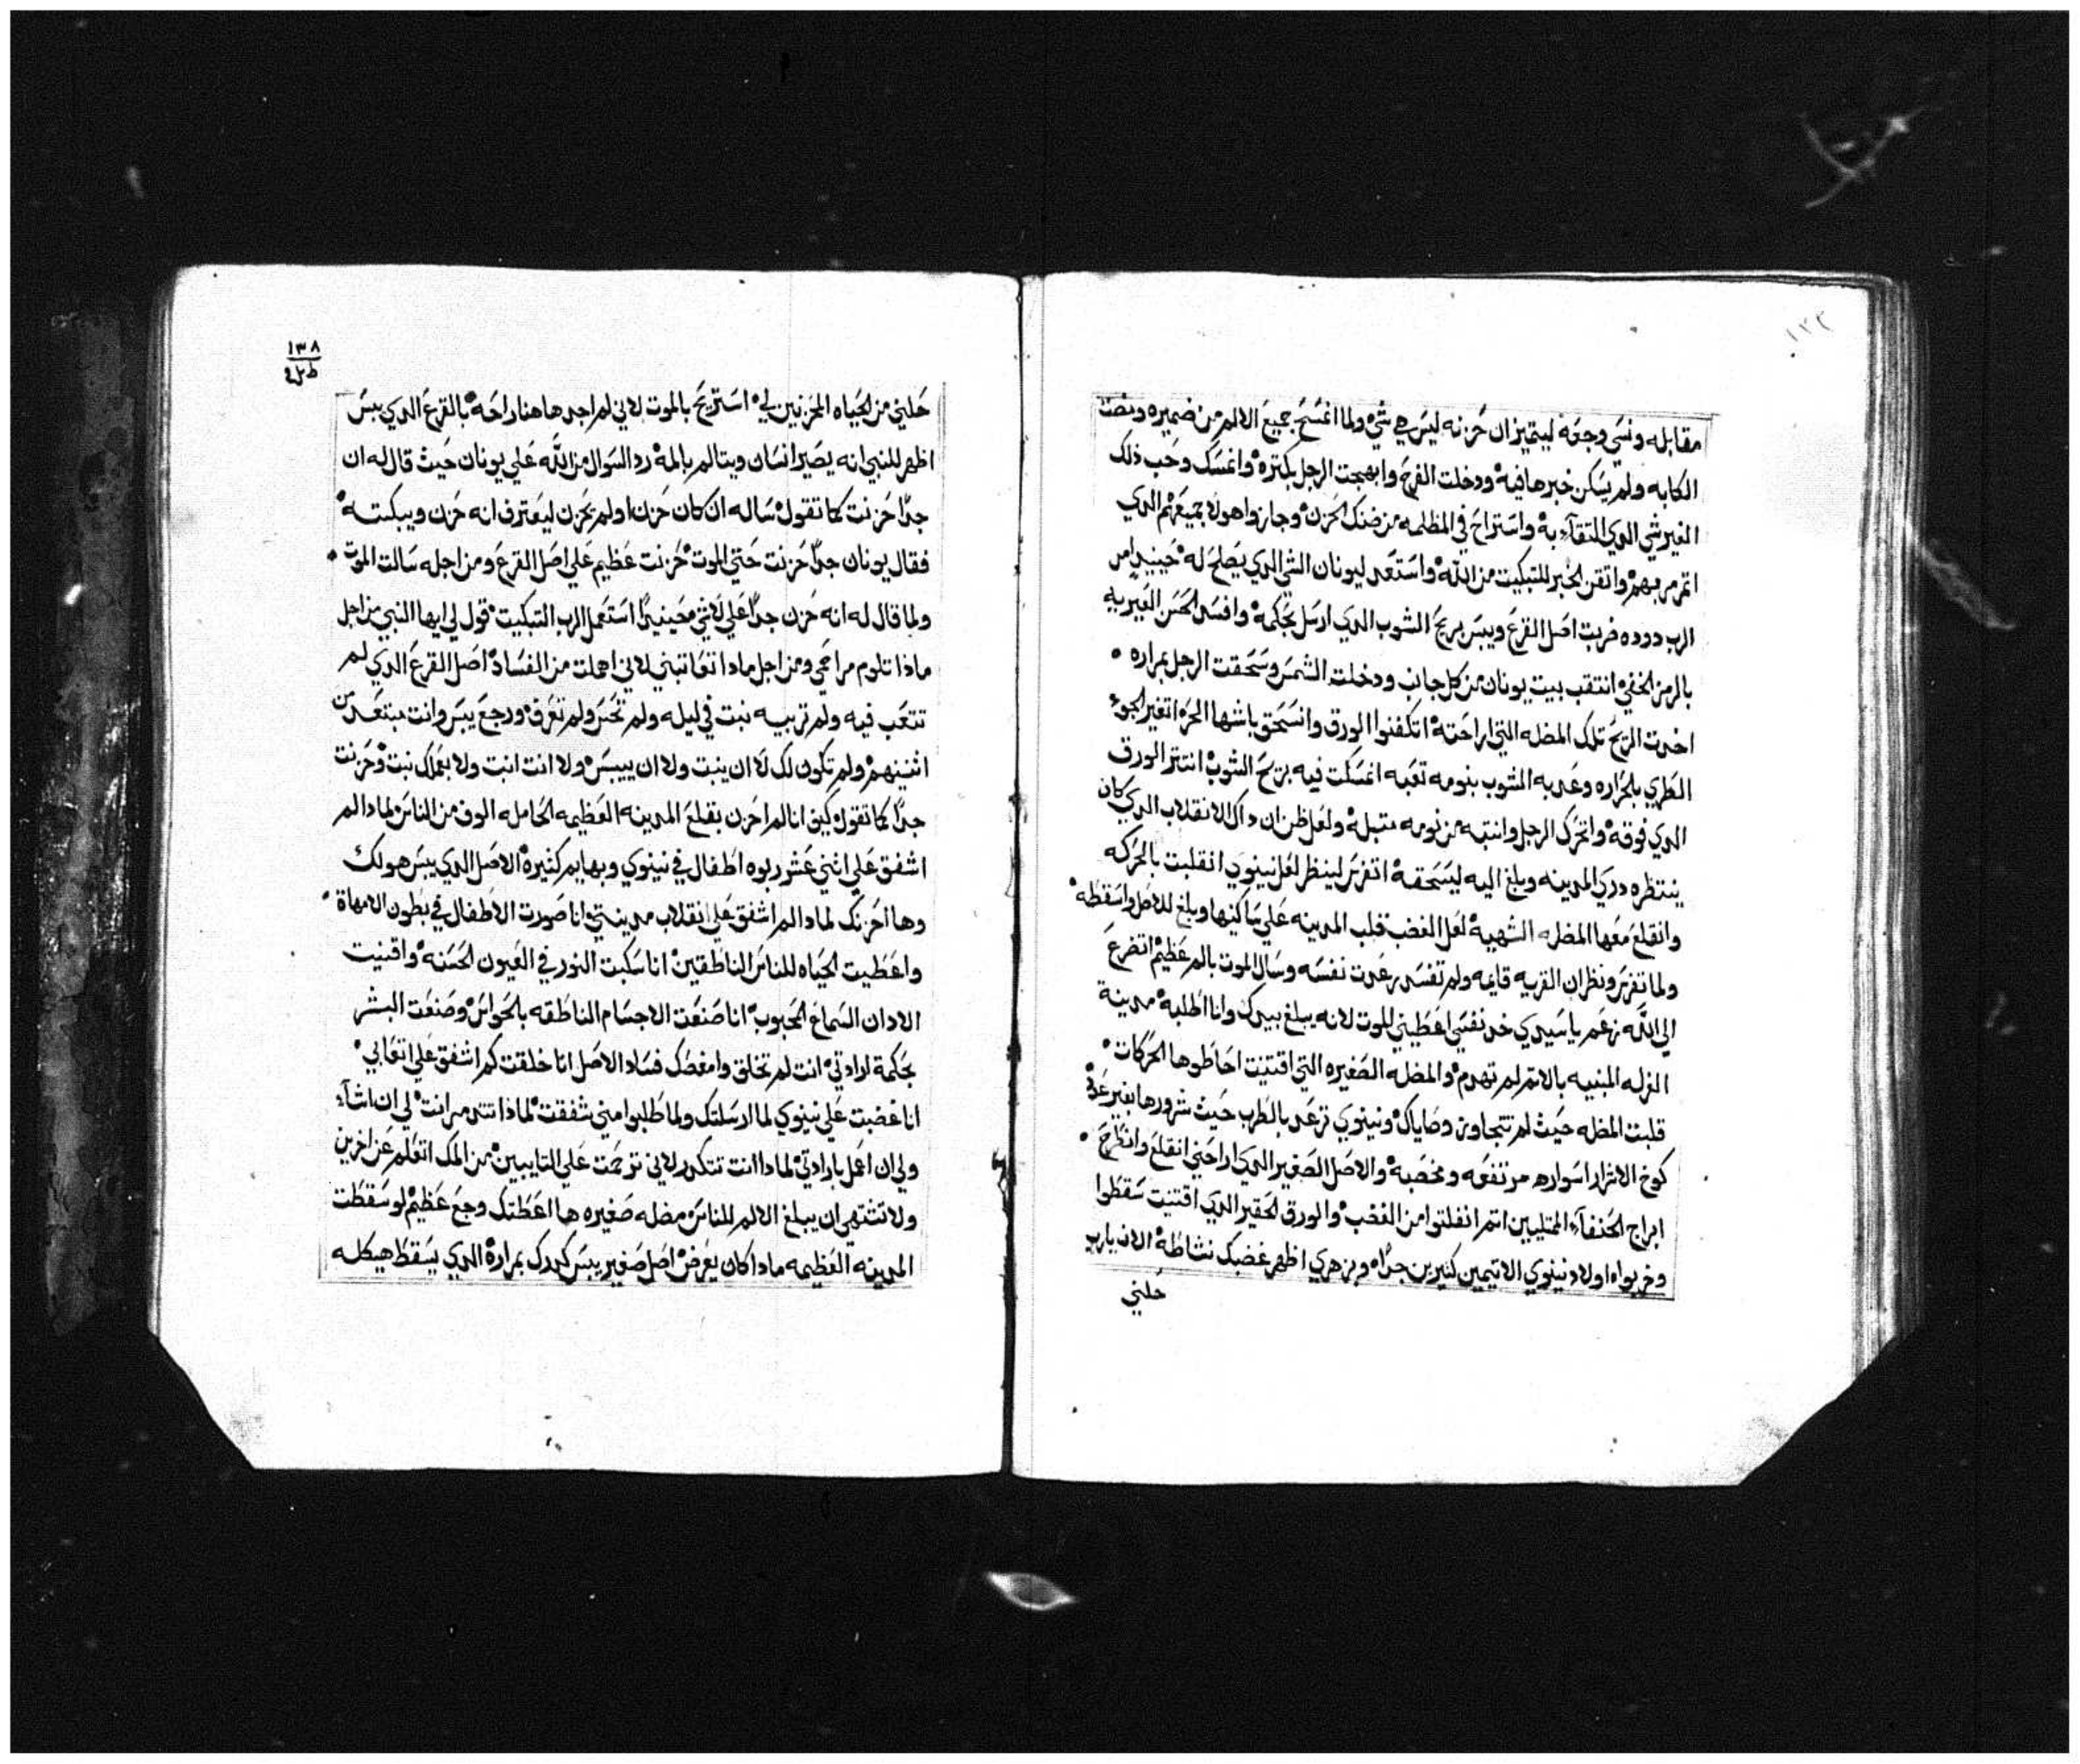 ١٣٣
مقابله ونسي وجعه ليتميز ان حزنه ليس هي شي ولما انمسح جميع الالم من ضميره ونصت
الكابه ولم يسكن خبرها فيه ودخلت الفرح وابهجت الرجل بكتره وانمسك وحب ذلك
الغير شي الدي التقآء به واستراح في المظلمه من ضنك الحزن وجازوا هولا جميعهم الدي
اتمرمر بهم واتقن الخبر للتبكيت من الله واستعد ليونان الشي الدي يصلح له حينيد امر
الرب دوده ضربت اصل القرع ويبس بريح الشوب الدي ارسل بحكمه وافسد الحسن الغير به
بالرمز الخفي انتقب بيت يونان من كل جانب ودخلت الشمس وسحقت الرجل بمراره
اخدت الريح تلك المضله التي اراحته اتكفنوا الورق وانسحق باشها الحره اتغير الجوء
الطري بالحراره وعدبه الشوب بنومه تعبه انمسكت فيه بريح الشوب انتتر الورق
الدي فوقه واتحرك الرجل وانتبه من نومه متبله ولعل ظن ان داك الانقلاب الدي كان
ينتظره دري المدينه وبلغ اليه ليسحقه اتفرس لينظر لعل نينوي انقلبت بالحركه
وانقلع معها المظله الشهيه لعل الغضب قلب المدينه علي ساكنها وبلغ للاصل واسقطه
ولما تفرس ونظر ان القريه قايمه ولم تفسد رعدت نفسه وسال الموت بالم عظيم اتضرع
الي الله نعم يا سيدي خد نفسي اعطيني الموت لانه يبلغ بيدك وانا اطلبه مدينة
الزله المبنيه بالاتم لم تهدم والمضله الصغيره التي اقتنيت احاطوها الحركات
قلبت المظله حيث لم تتجاوز وصاياك ونينوي ترعد بالطرب حيث شرورها بغير عدد
كوخ الاشرار اسواره مرتفعه ومخصبه والاصل الصغير الدي اراحني انقلع وانطرح
ابراج الحنفآء المتليين اتم انفلتوا من الغضب والورق الحقير الدي اقتنيت سقطوا
وخربواه اولاد نينوي الاتيمين كتيرين جداً وبزهدي اظهر غضبك نشاطه الان يارب
حلني
١٣٨
حلني من الحياه المحزنين لي استريح بالموت لاني لم اجد هاهنا راحه بالقرع الدي يبس
اظهر للنبي انه يصير انسان ويتالم بالمه رد السوال من الله علي يونان حيث قال له ان
جداً حزنت كما تقول ساله ان كان حزن او لم يحزن ليعترف انه حزن ويبكته
فقال يونان جداً حزنت حتي الموت حزنت عظيم علي اصل القرع ومن اجله سالت الموت
ولما قال له انه حزن جداً علي لا شي محينيداً استعمل الرب التبكيت قول لي ايها النبي من اجل
ماذا تلوم مراحمي ومن اجل مادا تعاتبني لاني اهملت من الفساد اصل القرع الدي لم
تتعب فيه ولم تربيه نبت في ليله ولم تحس ولم تعرف ورجع يبس وانت مبتعد من
اثنينهم ولم تكون لك لا ان ينبت ولا ان ييبس ولا انت انبت ولا بعملك نبت وحزنت
جداً كما تقول كيف انا لم احزن بقلع المدينه العظيمه الحامله الوف من الناس لمادا لم
اشفق علي اثني عشر ربوه اطفال في نينوي وبهايم كثيره الاصل الدي يبس هو لك
وها احزنك لمادا لم اشفق علي انقلاب مدينتي انا صورت الاطفال في بطون الامهاة
واعطيت الحياه للناس الناطقين انا سكبت النور في العيون الحسنه واقنيت
الادان السماع الحبوب انا صنعت الاجسام الناطقه بالحواس وصنعت البشر
بحكمة ارادتي انت لم تخلق وامغصك فساد الاصل انا خلقت كم اشفق علي اتعابي
انا غضبت علي نينوي لما ارسلتك ولما طلبوا مني شفقت لماذا تتدمر انت لي ان اشآء
ولي ان اعمل بارادتي لمادا انت تتكدر لاني ترحمت علي التايبين من المك اتعلم عن اخرين
ولا تشتهي ان يبلغ الالم للناس مضله صغيره ها اعطتك وجع عظيم لو سقطت
المدينه العظيمه مادا كان يعرض اصل صغير يبس كدرك بمرارة الدي يسقط هيكله